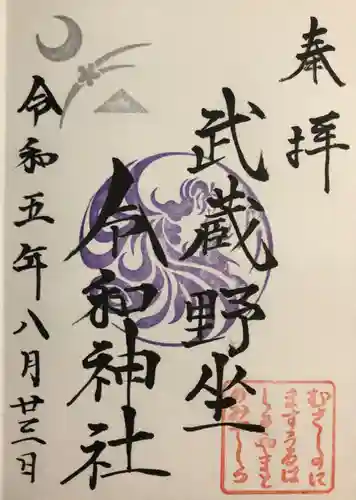 奉拝
武蔵野坐
令和神社
令和五年八月廿三日
むさしのに
ますうるは
しきやまと
のみやしろ